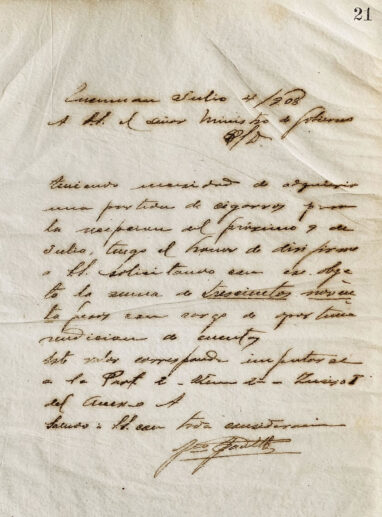 21
Tucuman Julio 4/908
A S.S. el Señor Ministro de Gobierno
S/D.
Teniendo necesidad de adquirir
una partida de cigarros para
la recepcion del próximo 9 de
Julio, tengo el honor de dirijirme
a S.S. solicitando con ese obje
to la suma de trescientos noven
ta pesos con cargo de oportuna
rendicion de cuentas
Este valor corresponde imputarse
a la Part. 2 - Item 2 - Inciso
del Anexo A
Saludo a S.S. con toda consideracion